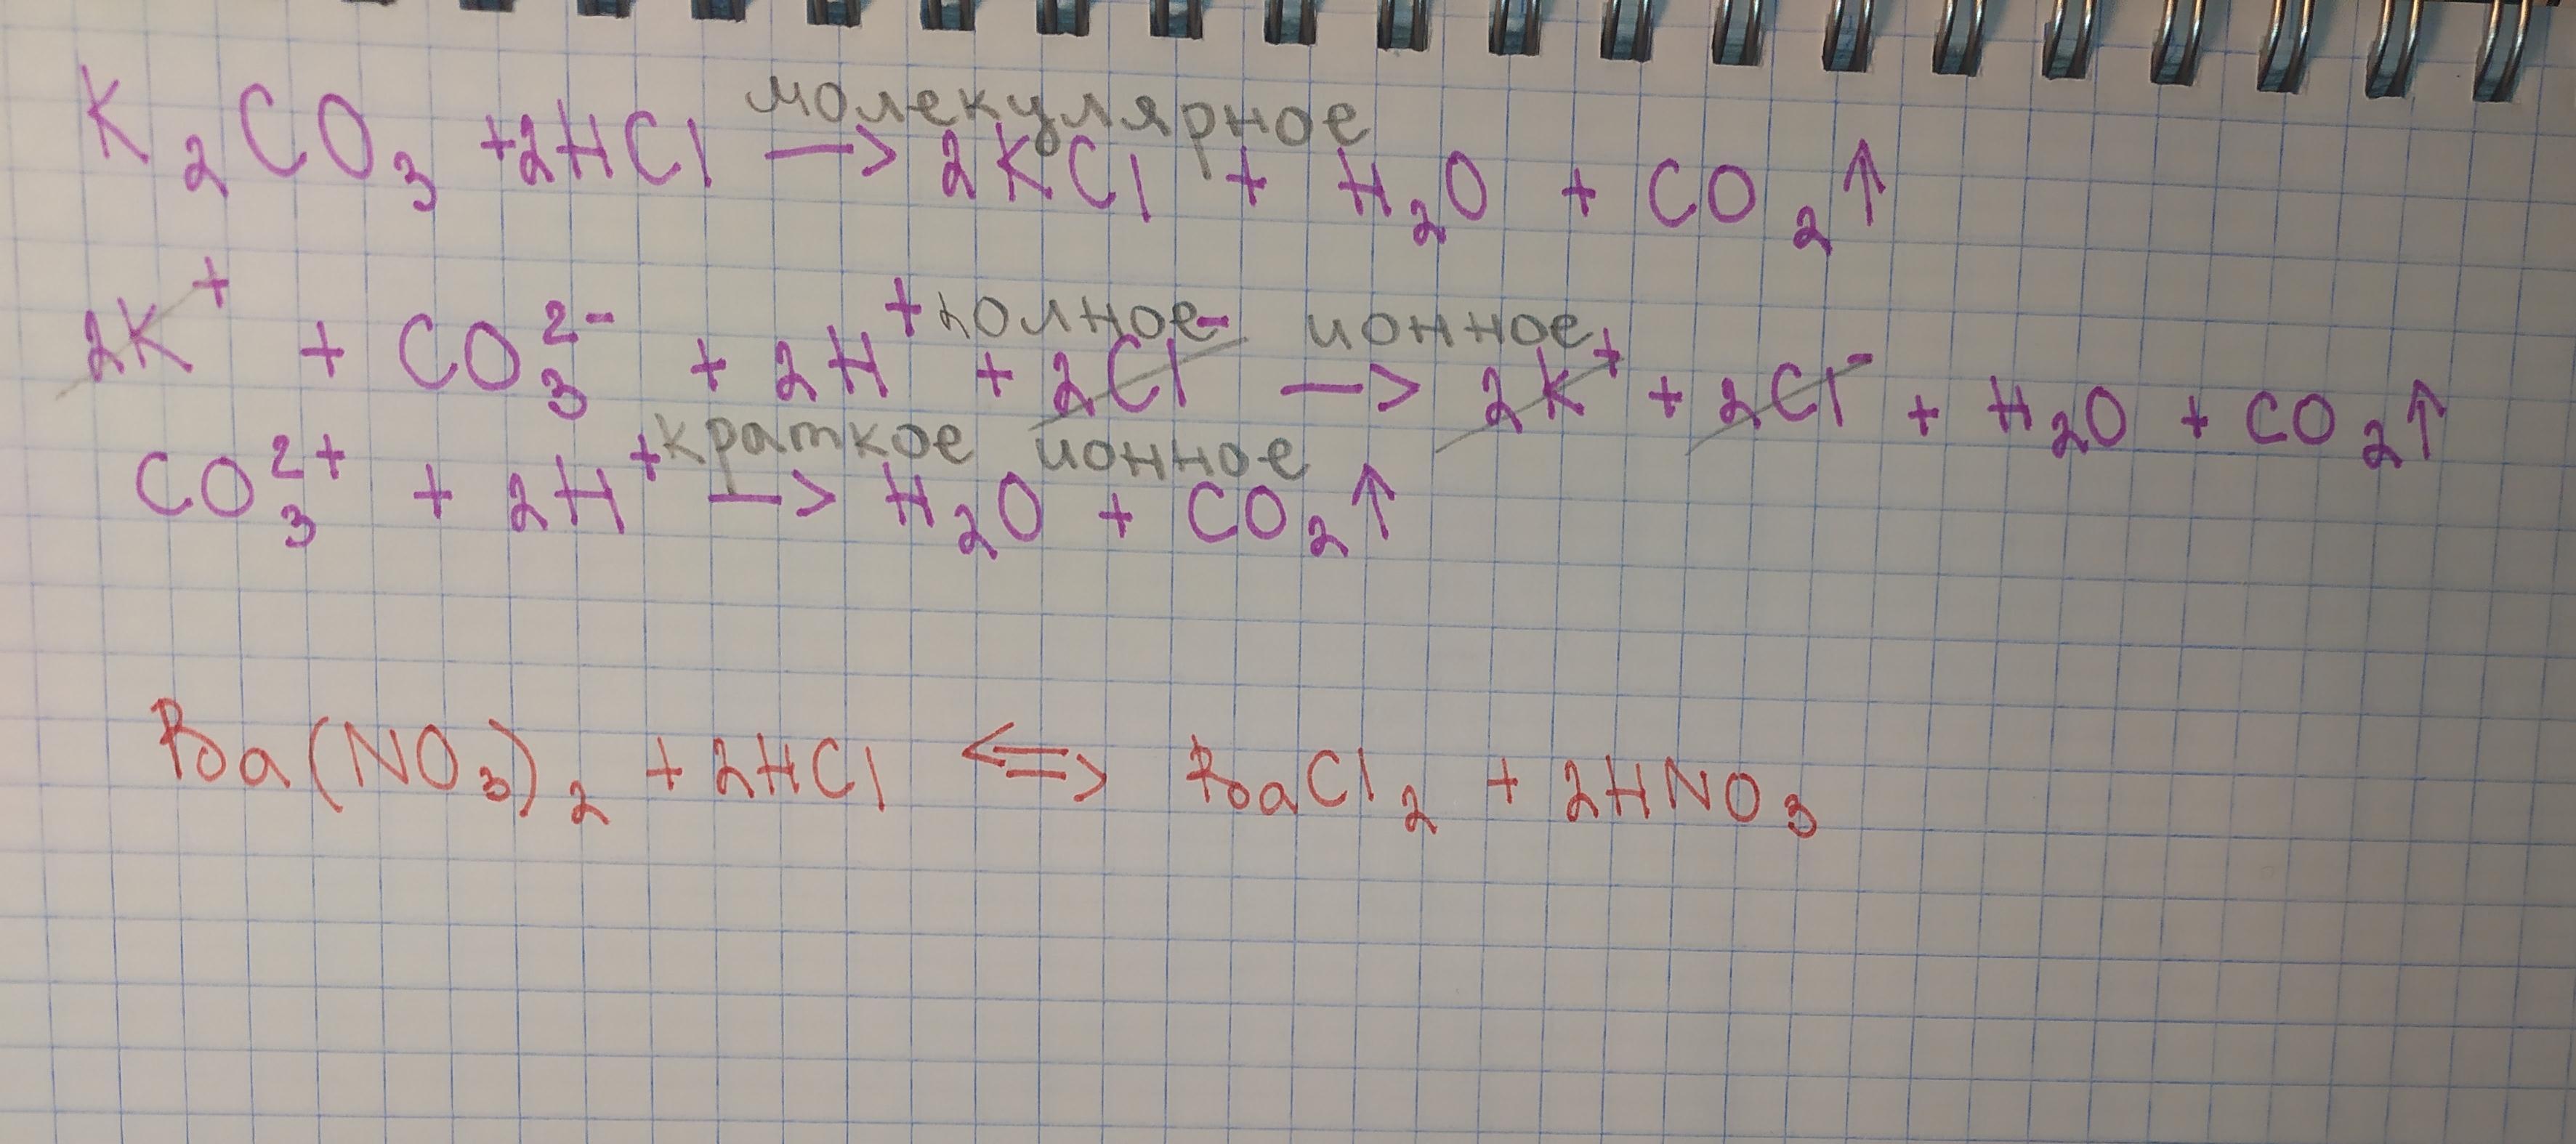 молекулярное
K₂CO₃ +2HCl —> 2KCl + H₂O + CO₂↑
полное ионное
2K⁺ + CO₃²⁻ + 2H⁺ + 2Cl⁻ —> 2K⁺ + 2Cl⁻ + H₂O + CO₂↑
краткое ионное
CO₃²⁺ + 2H⁺ —> H₂O + CO₂↑
Ba(NO₃)₂ + 2HCl <=> BaCl₂ + 2HNO₃